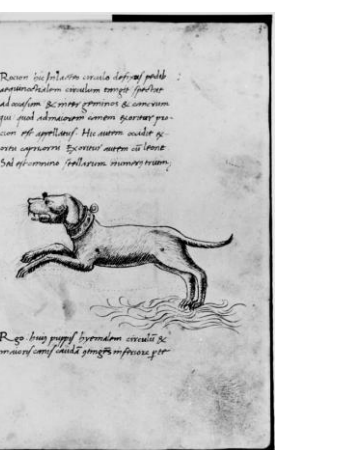 Rocion hic In lacteo circulo defixus pedib
aequinoctialem circulum tangit spectat
ad occasum & inter geminos & cancrum
qui quod ad maiorem canem exoritur pro-
cion est appellatus. Hic autem occidit ex-
ortu capricorni Exoritur autem cū leone
Sed est omnino stellarum numero trium;
Rgo. huius puppis hyemalem circulū &
maioris canis caudā inferiore